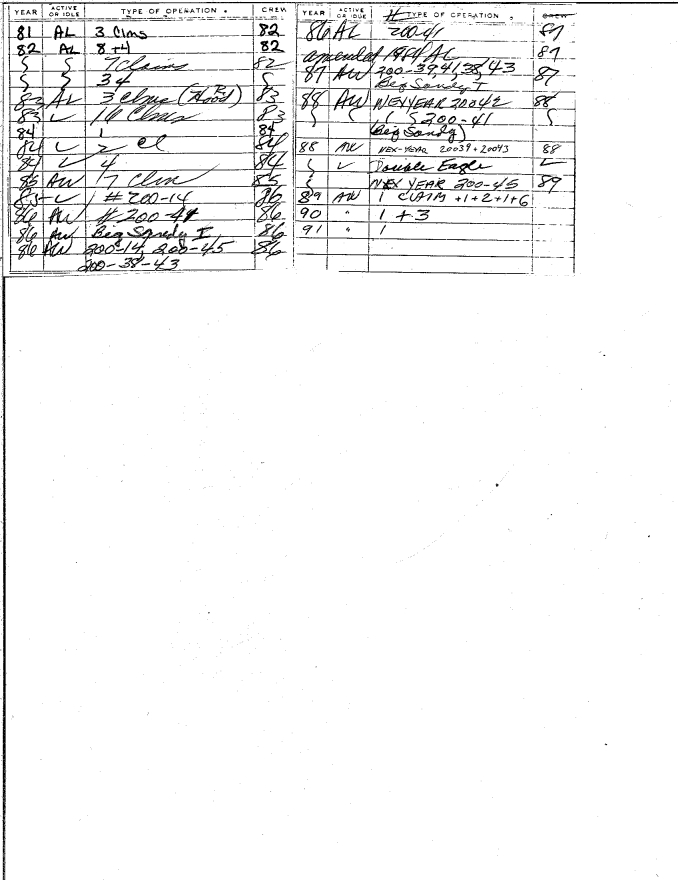 YEAR ACTIVE OR IDLE TYPE OF OPERATION CREW
81 AL 3 Clms 82
82 AL 8+4 82
7 Claims 82
34
83 AL 3 Clms 83
83 ✓ 16 Clms 83
84 1 84
84 ✓ 2 cl 84
84 ✓ 4 84
85 AW 7 Clm 85
85 ✓ # 200-14 86
86 AW # 200-44 86
86 AW Big Sandy I 86
86 AW 200-14, 200-45 86
200-38-43
YEAR ACTIVE OR IDLE # TYPE OF OPERATION CREW
86 AL 200-41 87
amended 1984 AL 87
87 AW 200-39,41,38,43 87
Big Sandy I
88 AW NEXYEAR 20042 88
200-41
(Big Sandy)
88 AW NEX-YEAR 20039+20043 88
✓ Double Eagle ✓
NEX YEAR 200-45 89
89 AW 1 CLAIM +1+2+1+6
90 " 1 + 3
91 " 1